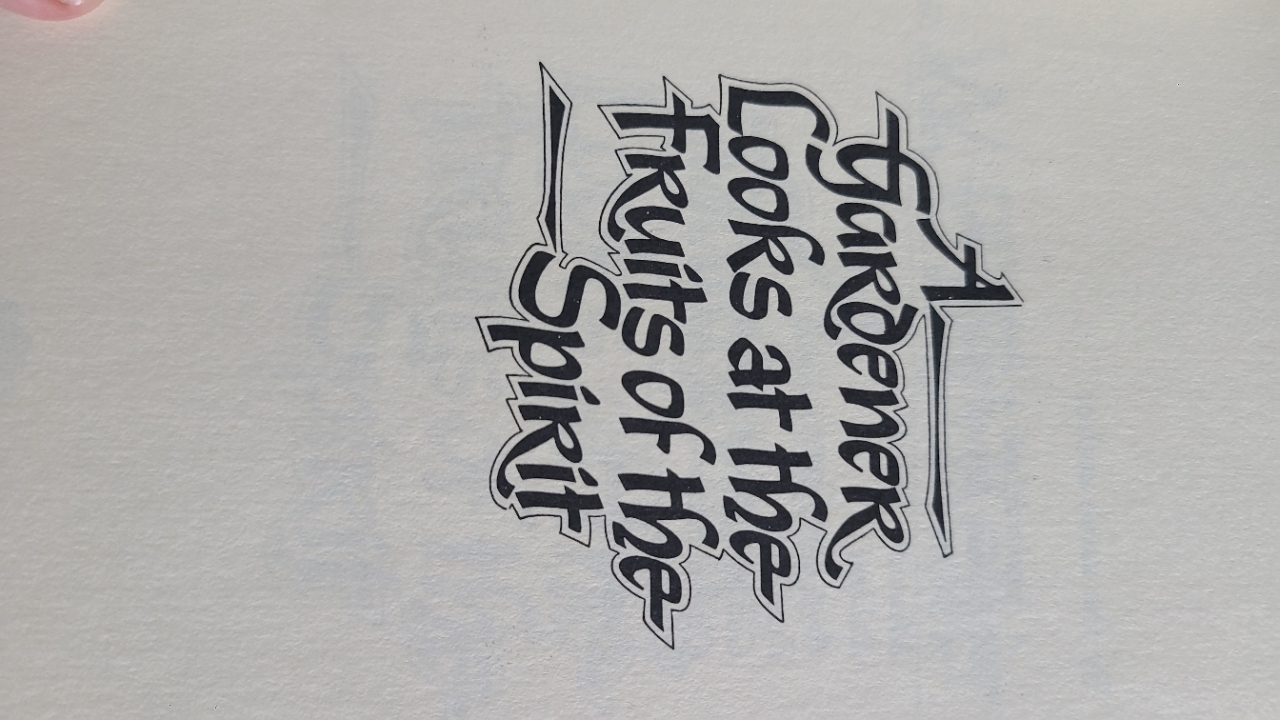 A
Gardener
Looks at the
Fruits of the
Spirit